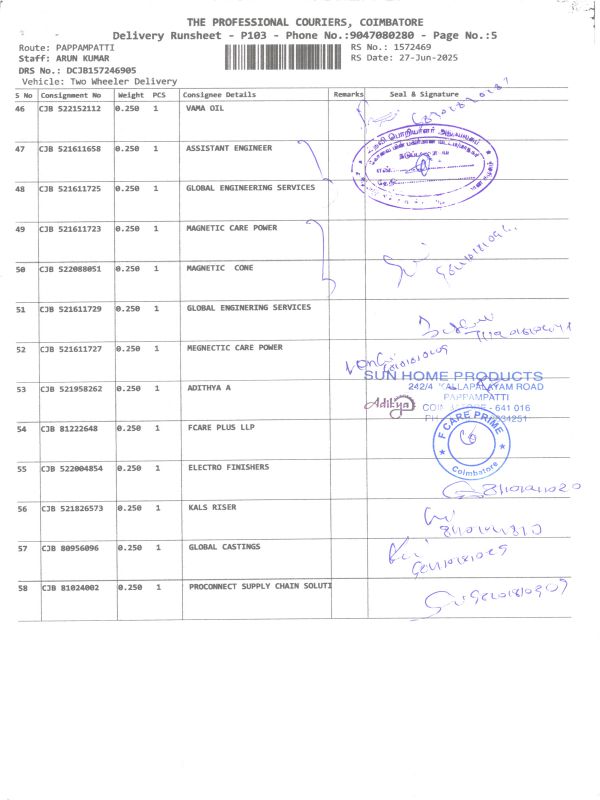 THE PROFESSIONAL COURIERS, COIMBATORE
Delivery Runsheet - P103 - Phone No.:9047080280 - Page No.:5
Route: PAPPAMPATTI
RS No.: 1572469
Staff: ARUN KUMAR
RS Date: 27-Jun-2025
DRS No.: DCJB157246905
Vehicle: Two Wheeler Delivery
S No Consignment No Weight PCS Consignee Details Remarks Seal & Signature
46 CJB 522152112 0.250 1 VAMA OIL
47 CJB 521611658 0.250 1 ASSISTANT ENGINEER
48 CJB 521611725 0.250 1 GLOBAL ENGINEERING SERVICES
49 CJB 521611723 0.250 1 MAGNETIC CARE POWER
50 CJB 522088051 0.250 1 MAGNETIC CONE
51 CJB 521611729 0.250 1 GLOBAL ENGINERING SERVICES
52 CJB 521611727 0.250 1 MEGNECTIC CARE POWER
SUN HOME PRODUCTS
53 CJB 521958262 0.250 1 ADITHYA A
242/4 KALLAPALAYAM ROAD
PAPPAMPATTI
Aditya
641 016
54 CJB 81222648 0.250 1 FCARE PLUS LLP
F CARE PRIME
Coimbatore
55 CJB 522004854 0.250 1 ELECTRO FINISHERS
56 CJB 521826573 0.250 1 KALS RISER
57 CJB 80956096 0.250 1 GLOBAL CASTINGS
58 CJB 81024002 0.250 1 PROCONNECT SUPPLY CHAIN SOLUTI